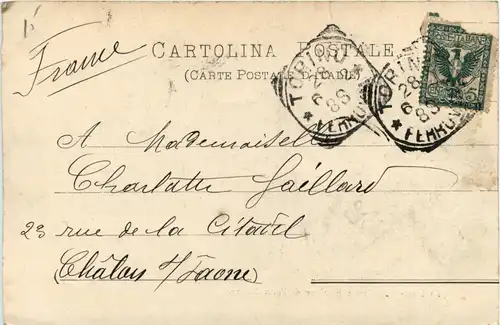 France
CARTOLINA POSTALE
(CARTE POSTALE D'ITALIE)
TORINO
FERROVIA
TORINO
FERROVIA
A Mademoiselle
Charlotte Gaillard
23 rue de la Citadel
Châlon s/Saone